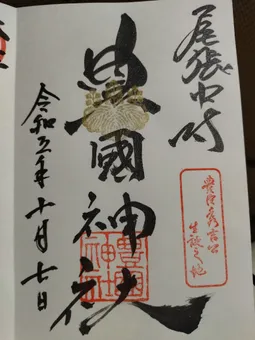 尾張中村
豊國神社
豊臣秀吉公
生誕之地
豊國
神社
令和五年十月七日